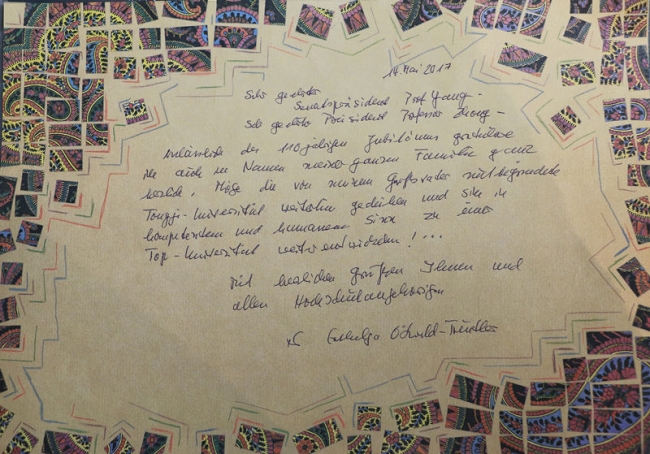 14. Mai 2017
Sehr geehrter
Senatspräsident Prof. Yang -
Sehr geehrter Präsident Professor Zhong -
Anlässlich des 110jährigen Jubiläums gratuliere
ich auch im Namen meiner ganzen Familie ganz
herzlich. Möge die von meinem Großvater mitbegründete
Tongji-Universität weiterhin gedeihen und sich in
kompetentem und humanem Sinn zu einer
Top-Universität weiterentwickeln! ...
Mit herzlichen Grüßen Ihnen und
allen Hochschulangehörigen